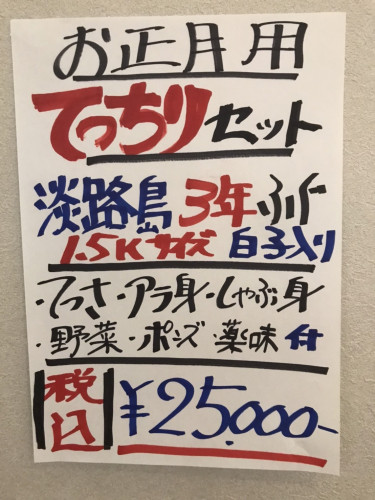 お正月用
てっちりセット
淡路島3年ふぐ
1.5Kサイズ 白子入り
・てっさ・アラ身・しゃぶ身
・野菜・ポンズ・薬味付
税込 ¥25.000-